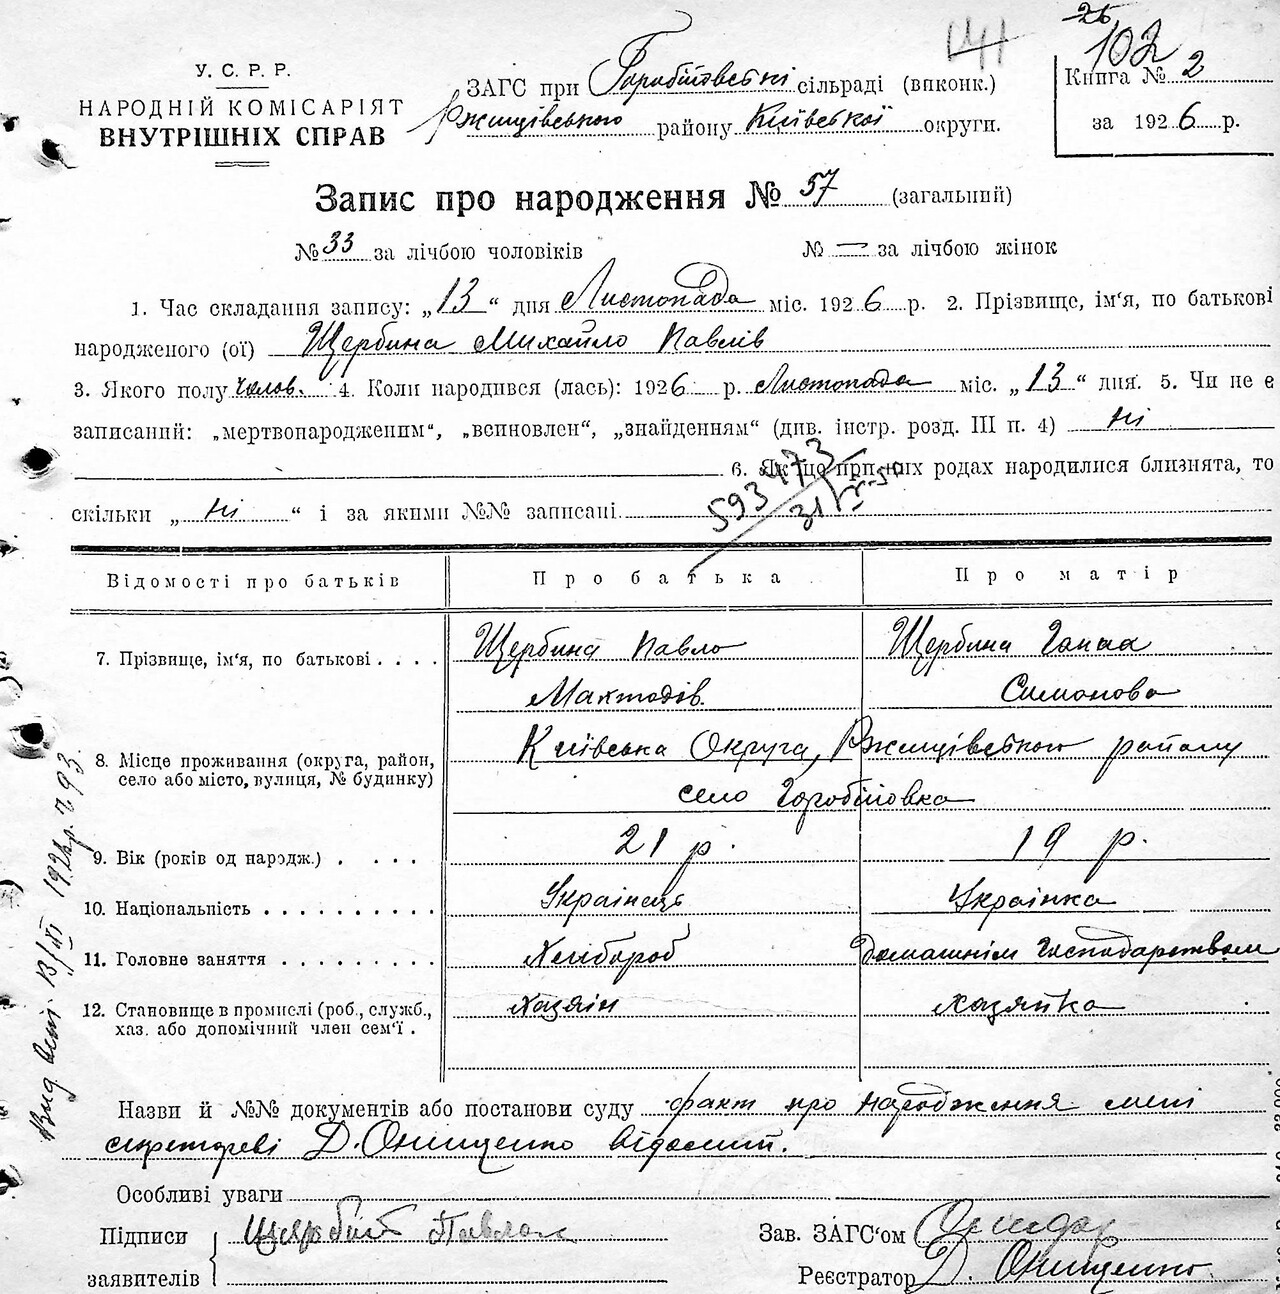 141
25
102
У. С. Р. Р.
НАРОДНІЙ КОМІСАРІЯТ
ВНУТРІШНІХ СПРАВ
ЗАГС при Горобіївські сільраді (виконк.)
Ржищівського району Київської округи.
Книга № 2
за 1926 р.
Запис про народження № 57 (загальний)
№ 33 за лічбою чоловіків № — за лічбою жінок
1. Час складання запису: „13“ дня Листопада міс. 1926 р. 2. Прізвище, ім'я, по батькові
народженого (ої) Щербина Михайло Павлів
3. Якого полу чолов. 4. Коли народився (лась): 1926 р. Листопада міс. „13“ дня. 5. Чи не є
записаний: „мертвонародженим“, „всиновлен“, „знайденням“ (див. інстр. розд. III п. 4) ні
6. Якщо при них родах народилися близнята, то
скільки „ ні “ і за якими №№ записані
593473
31/X-50
Відомості про батьків Про батька Про матір
7. Прізвище, ім'я, по батькові Щербина Павло Щербина Ганна
Махтодів. Симонова
8. Місце проживання (округа, район, Київська Округа, Ржищівського району
село або місто, вулиця, № будинку) село Горобіївка
9. Вік (років од народж.) 21 р. 19 р.
10. Національність Українець Українка
11. Головне заняття Хлібороб домашнім господарством
12. Становище в промислі (роб., служб., хазяін хазяйка
хаз. або допомічний член сем'ї .
Назви й №№ документів або постанови суду факт про народження мені
секретареві Д. Онищенко відомий.
Особливі уваги
Підписи Щербина Павло Зав. ЗАГС'ом
заявителів Реєстратор Д. Онищенко
13/XI 192